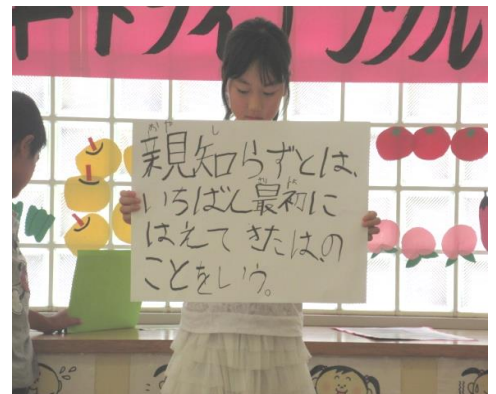 親知らずとは、
いちばん最初に
はえてきたは、の
ことをいう。